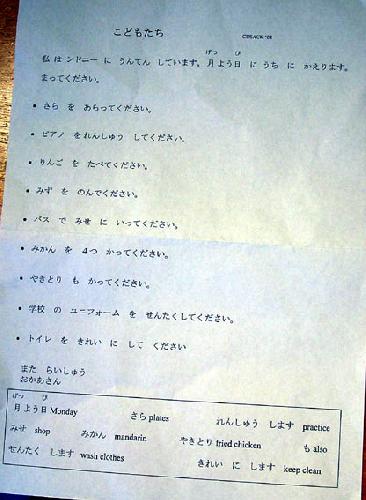 こどもたち
私 は シドニー に うんてん しています。 月よう日 に うち に かえります。
まってください。
• さら を あらってください。
• ピアノ を れんしゅう してください。
• りんご を たべてください。
• みず を のんでください。
• バス で みせ に いってください。
• みかん を 4つ かってください。
• やきとり も かってください。
• 学校 の ユニフォーム を せんたくしてください。
• トイレ を きれい に して ください
また らいしゅう
おかあさん
げつ び
月よう日 Monday さら plates れんしゅう します practice
みせ shop みかん mandarin やきとり fried chicken も also
せんたく します wash clothes きれい に します keep clean